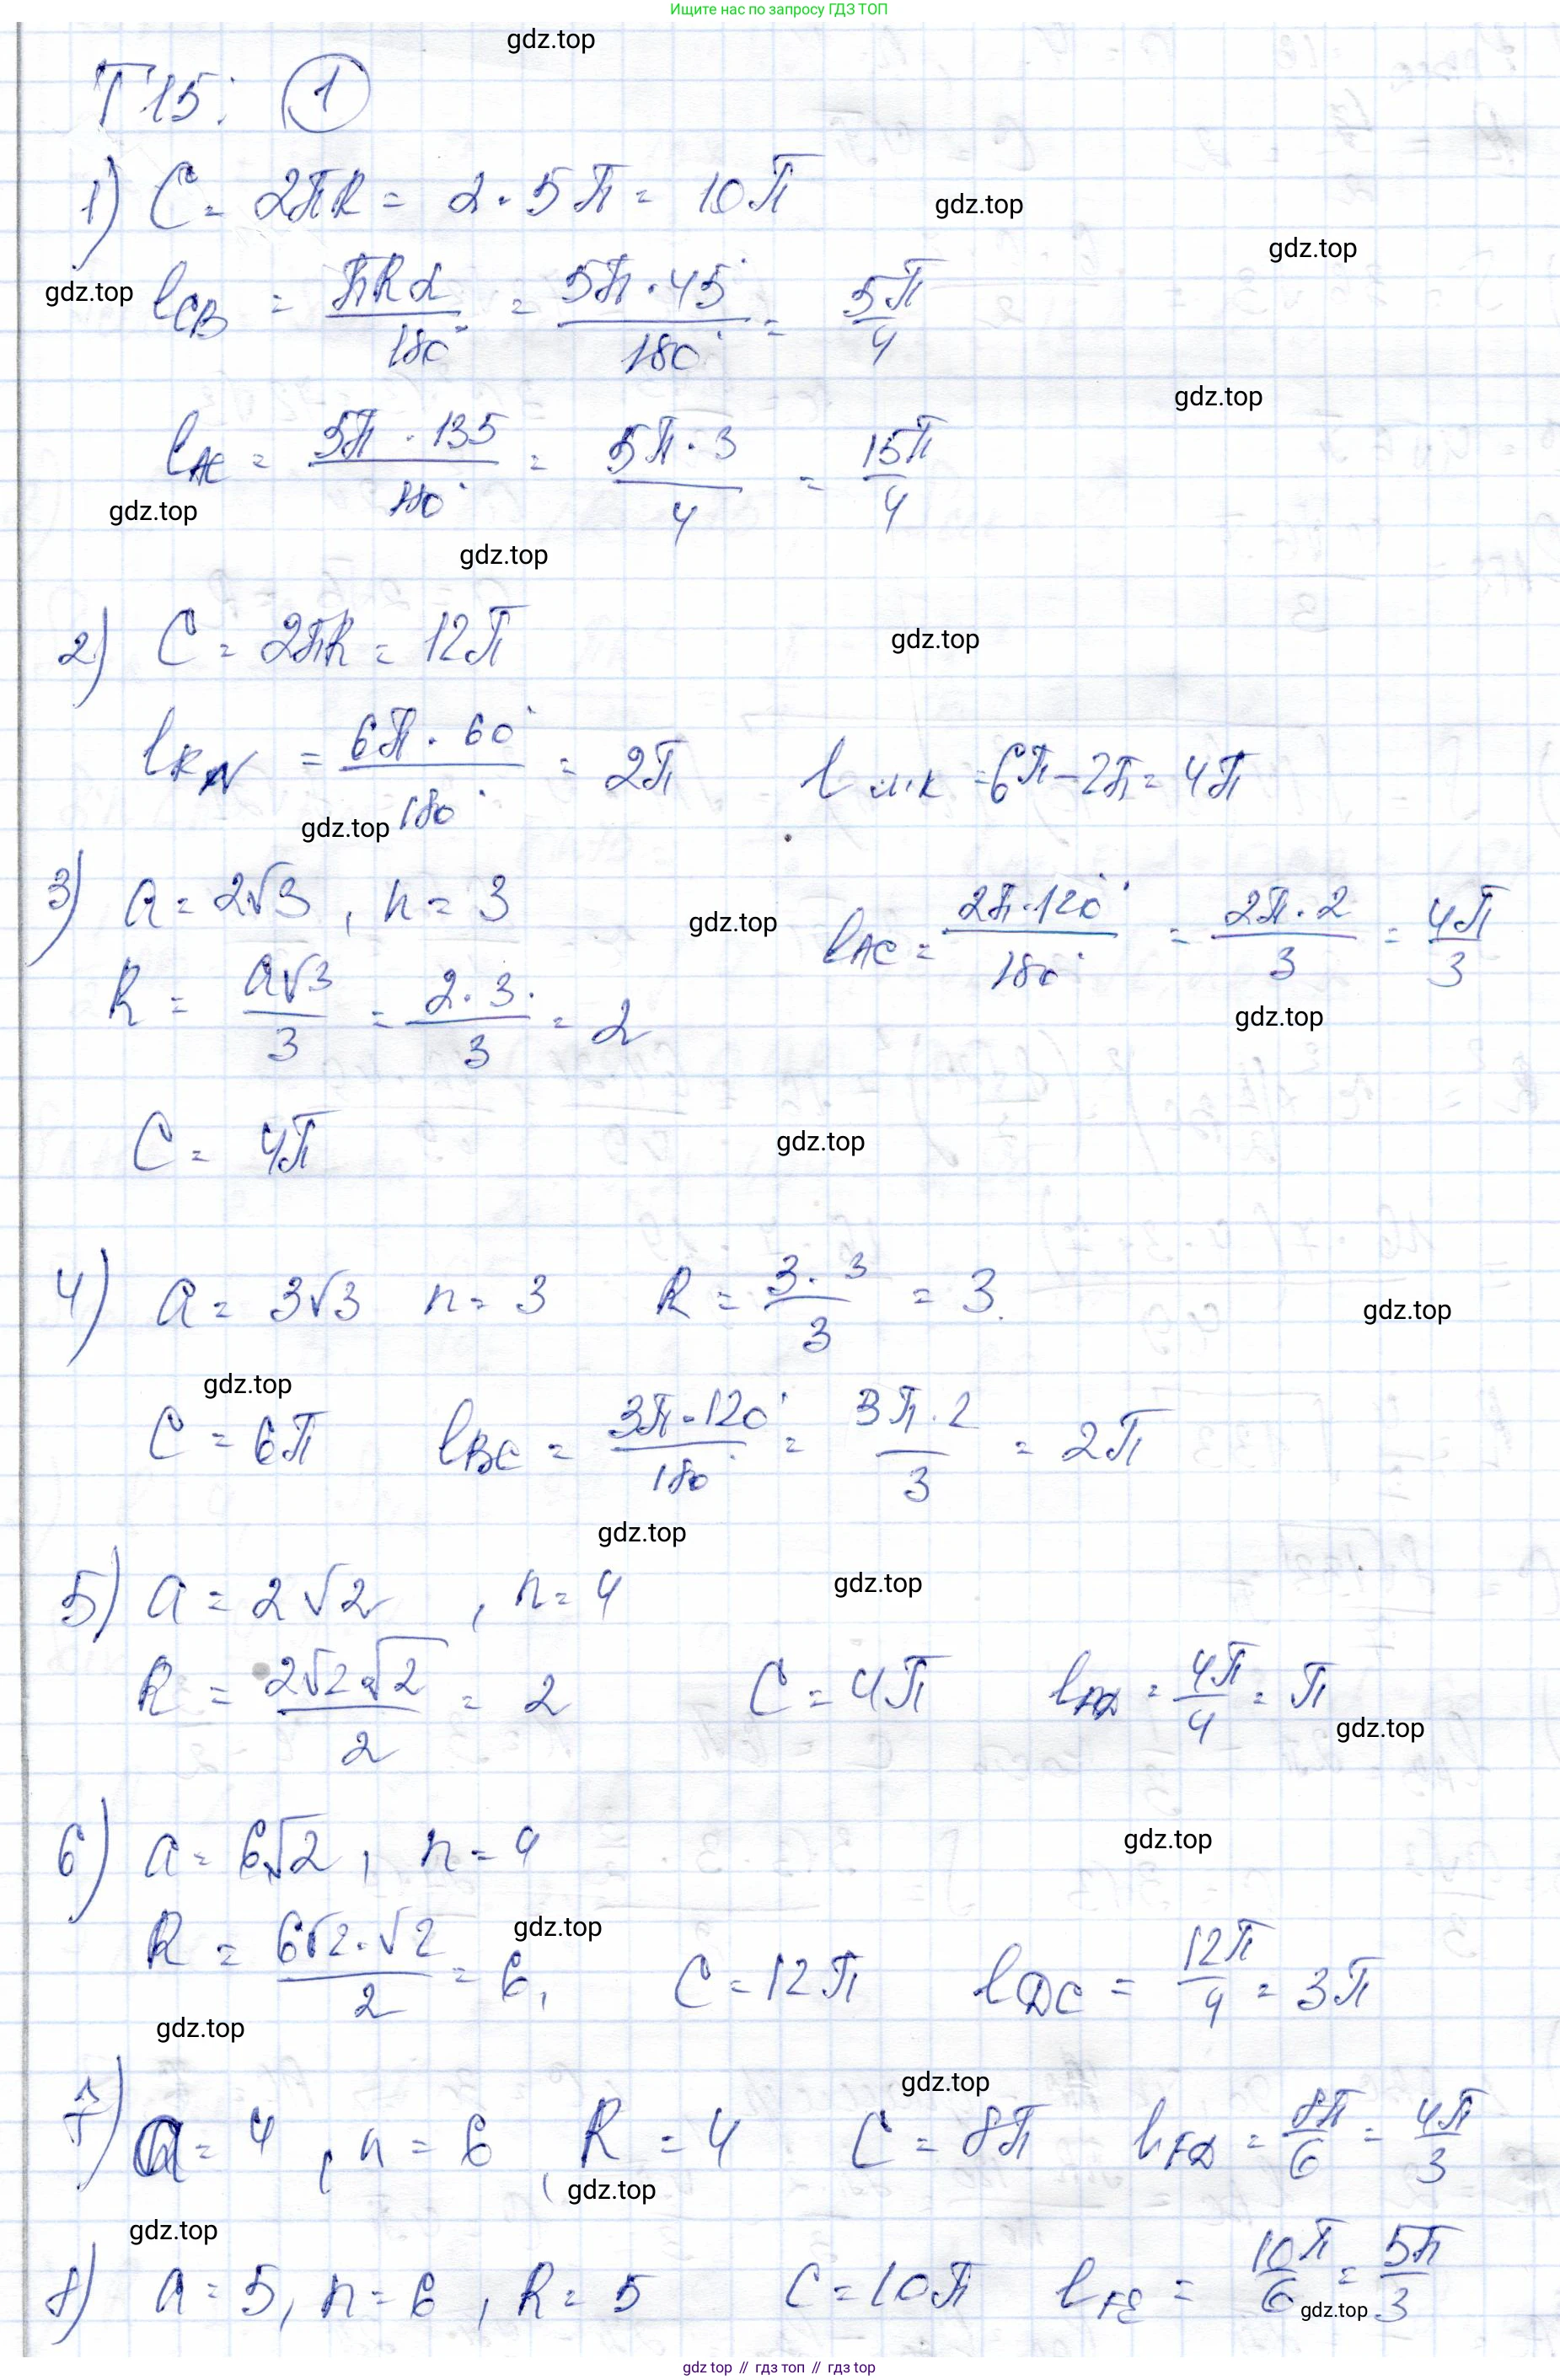 Ищите нас по запросу ГДЗ ТОП
gdz.top
Т 15: 1
1) C = 2πR = 2 · 5π = 10π
gdz.top
gdz.top
gdz.top
l_CB = πRα/180° = 5π · 45°/180° = 5π/4
gdz.top
l_AC = 5π · 135/180° = 5π · 3/4 = 15π/4
gdz.top
gdz.top
2) C = 2πR = 12π
gdz.top
l_KN = 6π · 60°/180° = 2π l_MK = 6π − 2π = 4π
gdz.top
3) a = 2√3, n = 3 l_AC = 2π · 120°/180° = 2π · 2/3 = 4π/3
gdz.top
R = a√3/3 = 2 · 3 ·/3 = 2
gdz.top
C = 4π
gdz.top
4) a = 3√3 n = 3 R = 3 · 3/3 = 3
gdz.top
gdz.top
C = 6π l_BC = 3π · 120°/180° = 3π · 2/3 = 2π
gdz.top
5) a = 2√2, n = 4
gdz.top
R = 2√2 · √2/2 = 2 C = 4π l_AD = 4π/4 = π
gdz.top
6) a = 6√2, n = 4
gdz.top
R = 6√2 · √2/2 = 6, C = 12π l_DC = 12π/4 = 3π
gdz.top
gdz.top
gdz.top
7) a = 4, n = 6, R = 4 C = 8π l_FD = 8π/6 = 4π/3
gdz.top
gdz.top
8) a = 5, n = 6, R = 5 C = 10π l_FE = 10π/6 = 5π/3
gdz.top
gdz top // гдз топ // гдз top